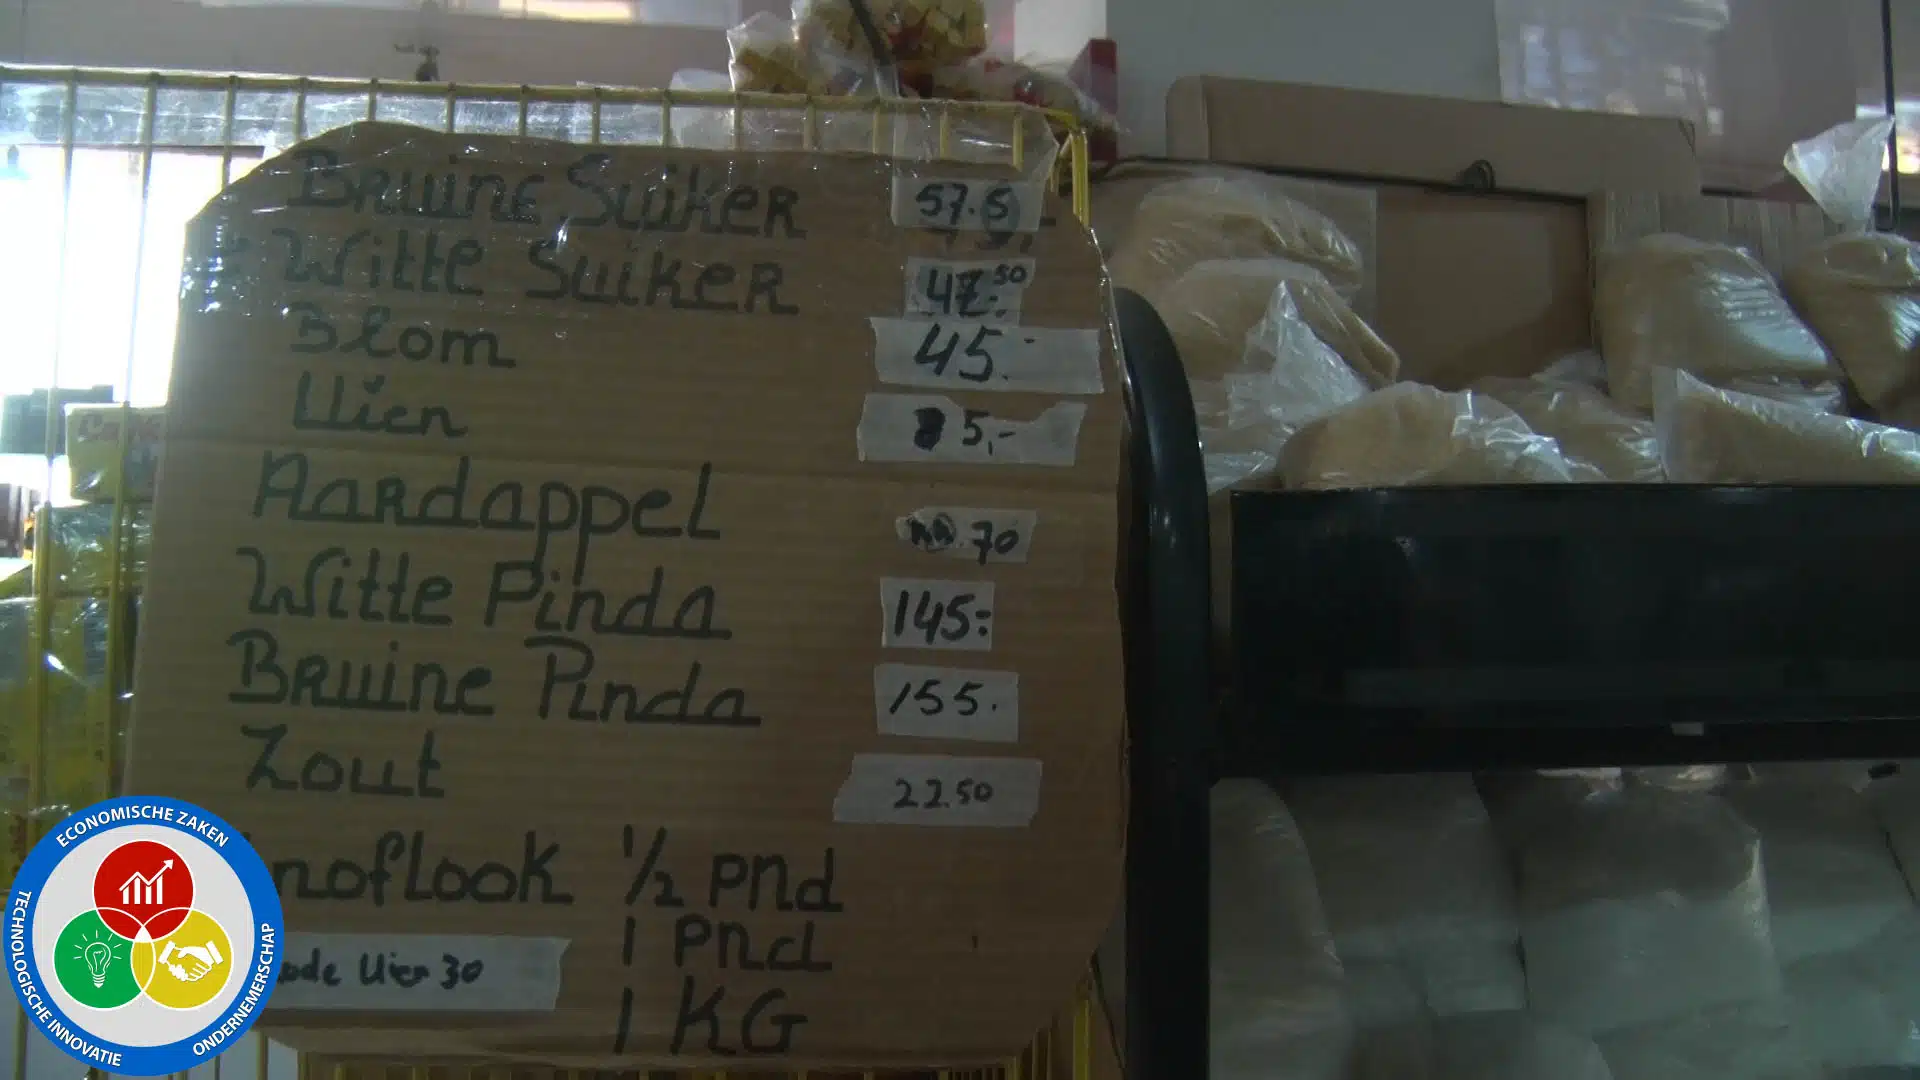 Bruine Suiker 57.5
Witte Suiker 47.50
Blom 45.-
Uien 5,-
Aardappel 70
Witte Pinda 145:
Bruine Pinda 155.
Zout 22.50
noflook 1/2 pnd
1 pnd
ode Uien 30
1 KG
ECONOMISCHE ZAKEN
TECHNOLOGISCHE INNOVATIE
ONDERNEMERSCHAP